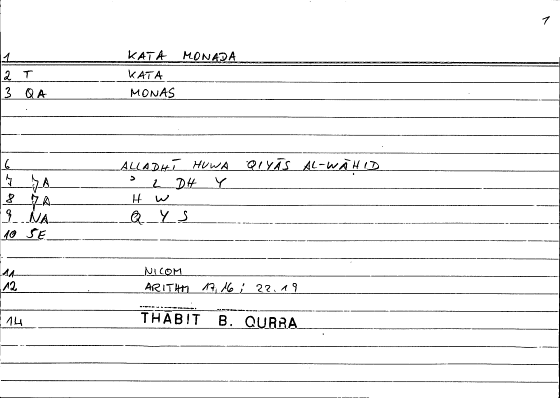 1
1 KATA MONADA
2 T KATA
3 QA MONAS
6 ALLADHĪ HUWA QIYĀS AL-WĀHID
7 JA ʾ L DH Y
8 JA H W
9 NA Q Y S
10 SE
11 NICOM
12 ARITHM 17,16; 22.19
14 THĀBIT B. QURRA